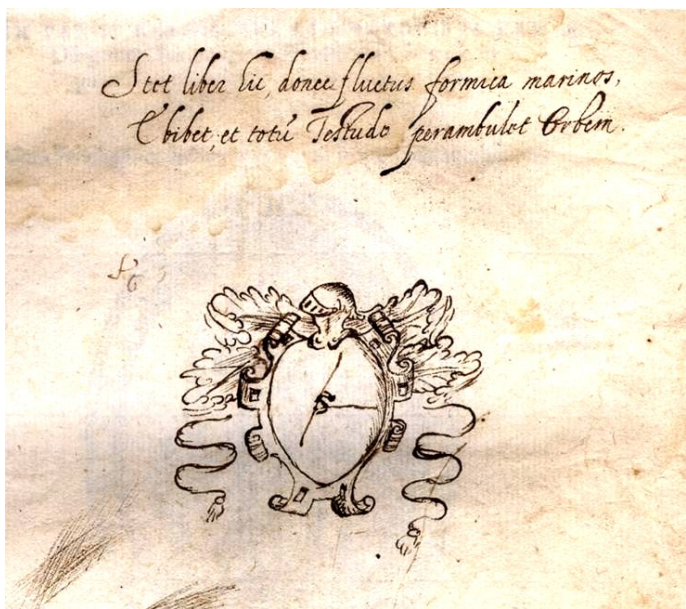 Stet liber hic, donec fluctus formica marinos,
Ebibet, et totũ Testudo perambulet Orbem.